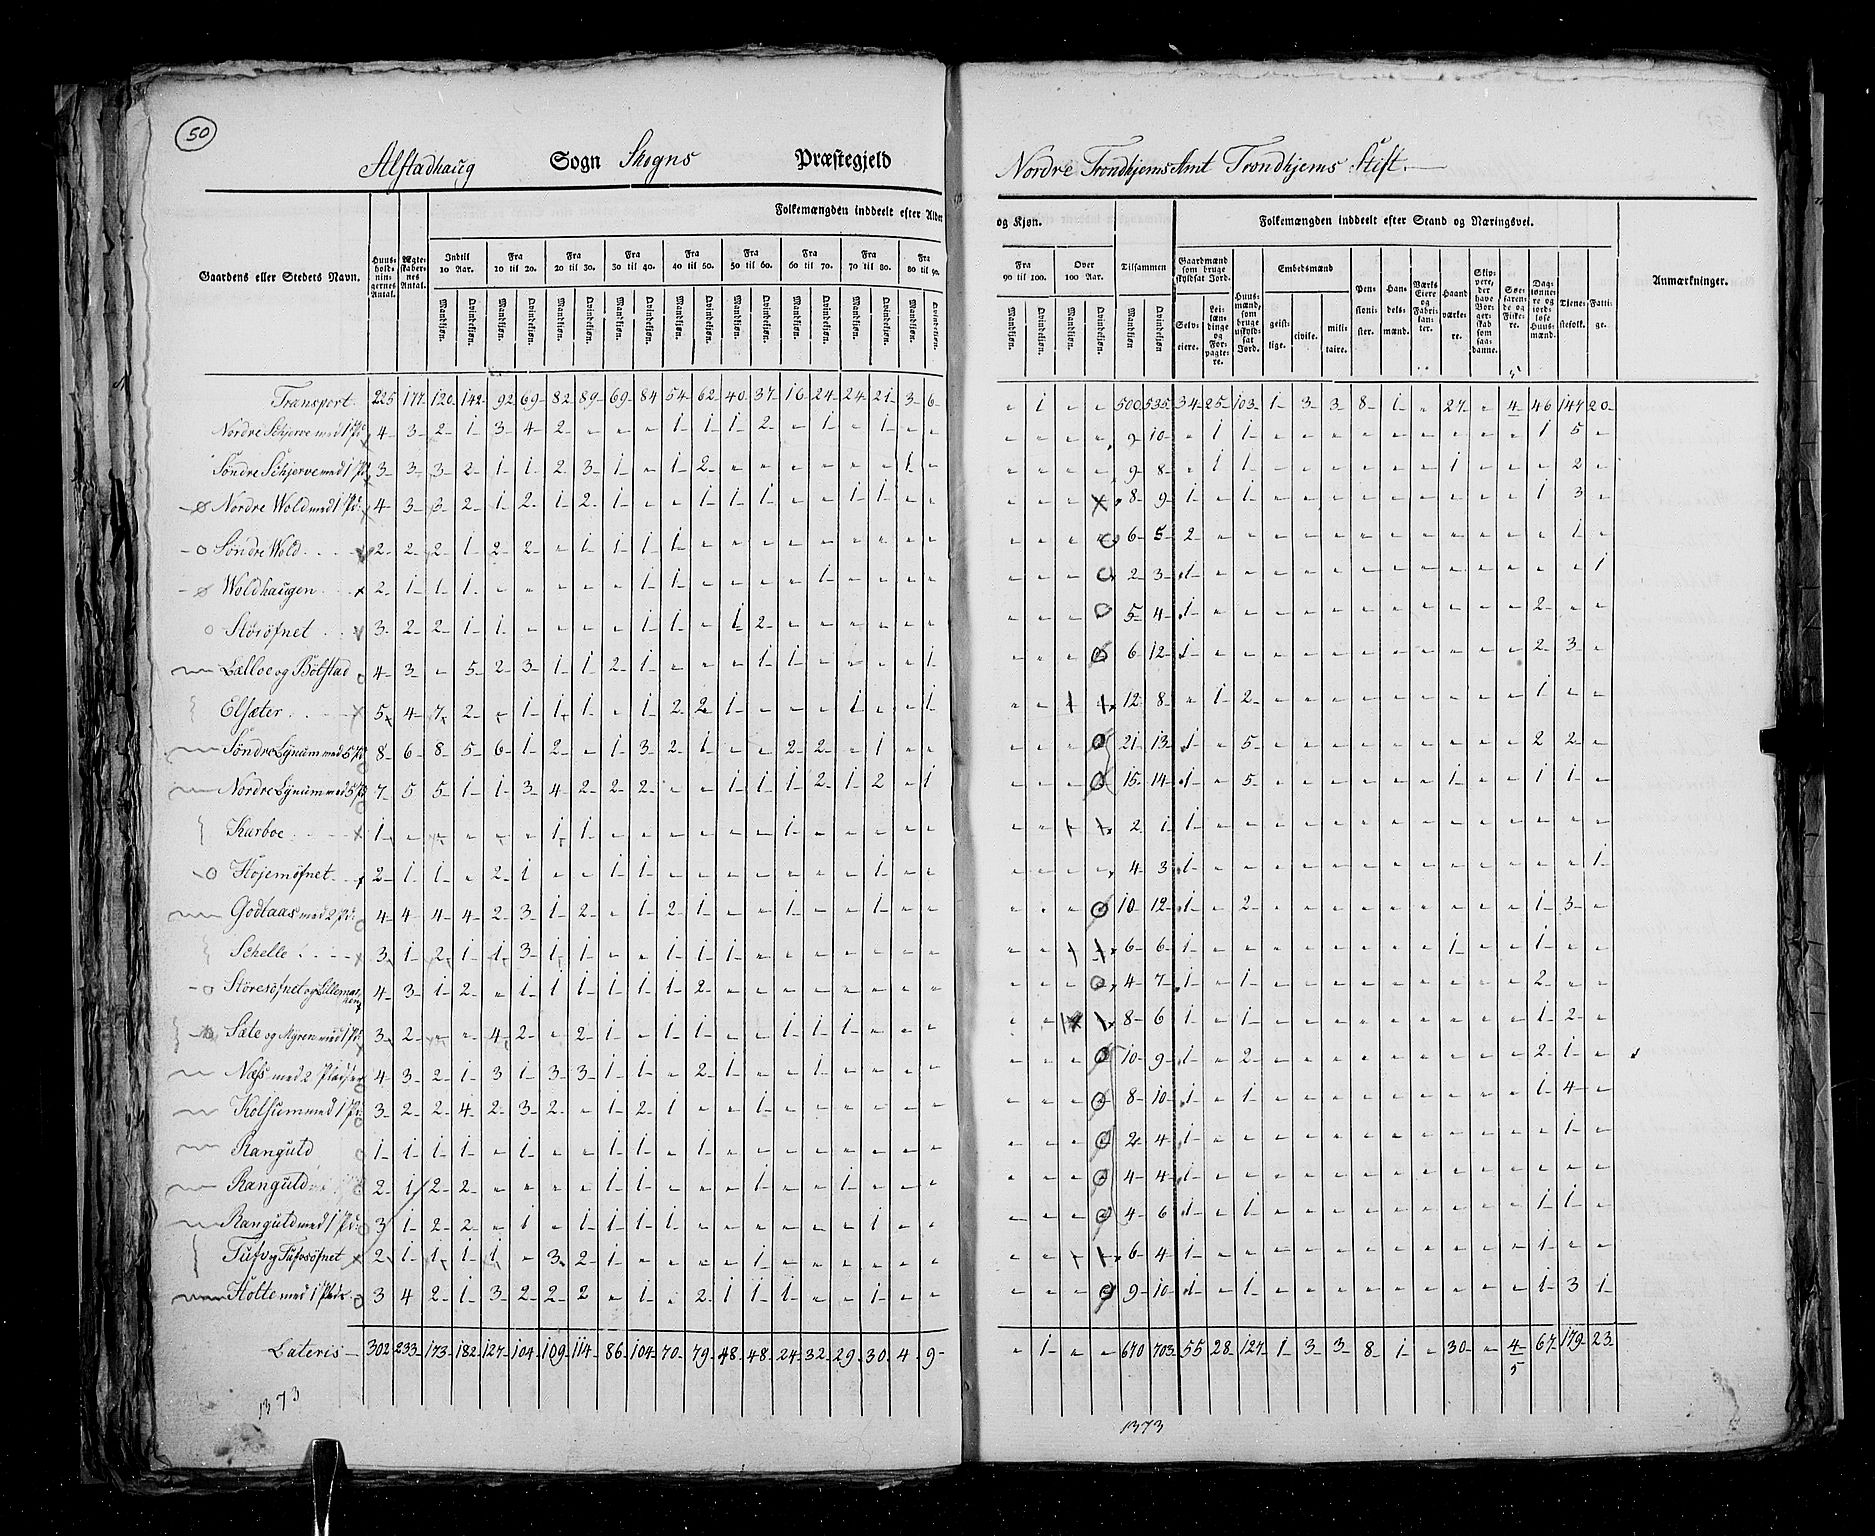 50
Alstadhaug Sogn Skogns Præstegjeld
Nordre Trondhjems Amt Trondhjems Stift.
Gaardens eller Steders Navn.
Huusholdningernes Antal.
Ægteskabernes Antal.
Folkemængden inddeelt efter Alder
og Kjøn.
Indtil 10 Aar. Fra 10 til 20. Fra 20 til 30. Fra 30 til 40. Fra 40 til 50. Fra 50 til 60. Fra 60 til 70. Fra 70 til 80. Fra 80 til 90.
Fra 90 til 100. Over 100 Aar. Tilsammen
Mandkjøn. Qvindekjøn.
Folkemængden inddeelt efter Stand og Næringsvei.
Gaardmænd som bruge skyldsat Jord.
Selveiere. Leilændinge og Forpagtere.
Huusmænd, som bruge uskyldsat Jord.
Embedsmænd
geistlige. civile. militaire.
Pensionister.
Handelsmænd.
Værks Eiere og Fabrikanter.
Haandværkere.
Skippere, der have Borgerskab som saadanne.
Søefarende og Fiskere.
Dagslønnere og jordløse Huusmænd.
Tjenestefolk.
Fattige.
Anmærkninger.
Transport 225 177 120 142 92 69 82 89 69 84 54 62 40 37 16 24 24 21 3 6 - 1 - - 500 535 34 25 103 1 3 3 8 1 - 27 - 4 46 147 20
Nordre Schjerve med 1 Pl: 4 3 2 1 3 4 2 - - - 1 1 1 2 - 1 - 1 - - - - - - 9 10 - 1 1 - - - - - - - - - 1 5 -
Søndre Schjerve med 1 Pl 3 3 3 2 1 1 2 3 1 - 1 2 - - - - - - 1 - - - - - 9 8 - 1 1 - - - - - - 1 - - - 2 -
Nordre Wold med 1 Pl: 4 3 3 2 1 2 1 2 1 - - 1 1 1 - - 1 1 - - 8 9 1 - 1 - - - - - - - - - 1 3 -
Søndre Wold 2 2 2 1 2 2 - 1 1 1 1 - - - - - - - - - 6 5 2 - - - - - - - - - - - - 1 -
Woldhaugen 2 1 1 1 - - - - - 1 1 - - - - 1 - - - - 2 3 1 - - - - - - - - - - - - - 1
Störöfnet 3 2 2 1 1 - - - - 1 1 - 1 2 - - - - - - 5 4 1 - - - - - - - - - - - 2 - -
Lælloe og Böbstad 4 3 - 5 2 3 1 1 2 1 - - - 1 1 - - - - 1 6 12 1 - - - - - - - - - - - 2 3 -
Elsæter 5 4 7 2 - 1 1 1 - 1 2 2 1 - - - 1 - - 1 12 8 - 1 2 - - - - - - - - - 1 - -
Søndre Lynum med 5 Pl 8 6 8 5 6 1 2 - 1 3 2 1 - - 2 2 - 1 - - 21 13 1 - 5 - - - - - - - - - 2 2 -
Nordre Lynum med 5 Pl 7 5 5 1 1 3 4 2 2 2 - - 1 1 1 2 1 2 - 1 15 14 1 - 5 - - - - - - 1 - - 1 1 -
Karboe 1 - - - - - 1 1 - - - - - - 1 - - - - - 2 1 1 - - - - - - - - - - - - - -
Højemöfnet 2 1 1 - 2 1 - - 1 1 - - - - - - - 1 - - 4 3 1 - - - - - - - - - - - - - 1
Godtaas med 2 Pl: 4 4 4 4 2 3 1 2 - 1 2 1 - - 1 - - 1 - - 10 12 1 - 2 - - - - - - - - - 1 3 -
Schelle 3 1 2 1 1 3 1 1 - - 1 1 1 - - - - - - - 6 6 1 - - - - - - - - 1 - - 1 - -
Störesöfnet og Lillemarken 4 3 1 2 - 1 1 1 1 1 1 2 - - - - - - - - 4 7 1 - 1 - - - - - - - - - 2 - -
Sæte og Myren med 1 Pl: 3 2 - - 4 2 - 2 1 - 1 1 - 1 1 1 1 - - - 8 6 1 - 1 - - - - - - - - - 1 2 -
Næss med 2 Pladser 4 3 2 1 3 1 3 3 1 1 - 2 1 - - 1 - - - - 10 9 1 - 2 - - - - - - - - - 2 1 -
Kolsum med 1 Pl: 3 2 2 4 2 3 2 - 1 2 1 - - 1 - - - - - - 8 10 1 - 1 - - - - - - - - - 1 4 -
Ranguld 1 1 1 1 - - - - 1 1 - 1 - - - - - - - - 2 4 1 - - - - - - - - - - - - 1 -
Ranguld 2 1 2 2 - - - - 1 1 - - - 1 - - 1 - - - 4 4 1 - - - - - - - - - - - - - -
Ranguld med 1 Pl: 3 1 2 2 - 1 - 1 1 1 1 - - - - - - 1 - - 4 6 1 - 1 - - - - - - - - - 1 1 -
Tuf og Tufsöfnet 2 1 1 1 1 - 3 2 1 - - - - 1 - - - - - - 6 4 1 - - - - - - - - - - - 1 - -
Holte med 1 Plds. 3 4 2 1 3 2 2 2 - 1 - 2 1 1 1 - - 1 - - 9 10 1 - 1 - - - - - - - - - 1 3 1
Lateris 302 233 173 182 127 104 109 114 86 104 70 79 48 48 24 32 29 30 4 9 - 1 - - 670 703 55 28 127 1 3 3 8 1 - 30 - 4 67 179 23
5
1373
1373